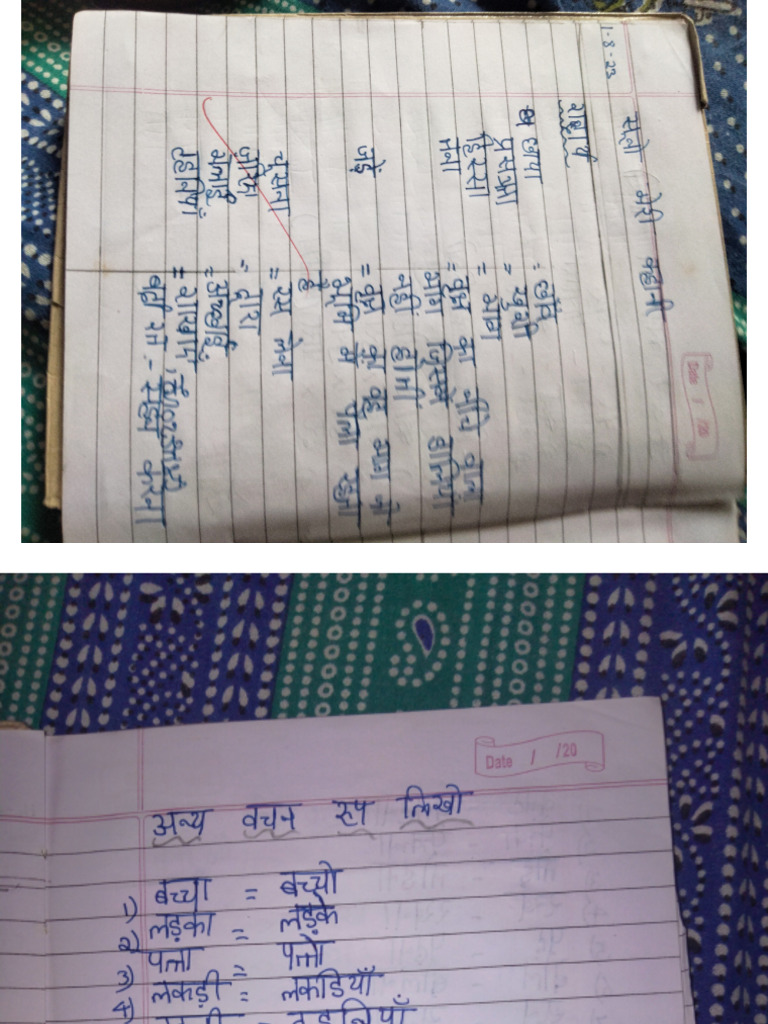 1-8-23
Date / /20
सुनो मेरी कहानी
शब्दार्थ
छाया = छाँव
प्रसन्नता = खुशी
हिस्सा = भाग
तना = वृक्ष का नीचे वाला
भाग जिसमें डालियां
नहीं होती
जड़े = वृक्ष का वह भाग जो
भूमि के फैला रहता
है
चूसना = रस लेना
जरिए = द्वारा
भलाई = अच्छाई
टहनियाँ = शाखाएं,
वर्दाश्त - सहन करना
Date / /20
अन्य वचन रूप लिखो
1) बच्चा = बच्चो
2) लड़का = लड़के
3) पत्ता = पत्तो
4) लकड़ी = लकडियाँ
= टहनियाँ